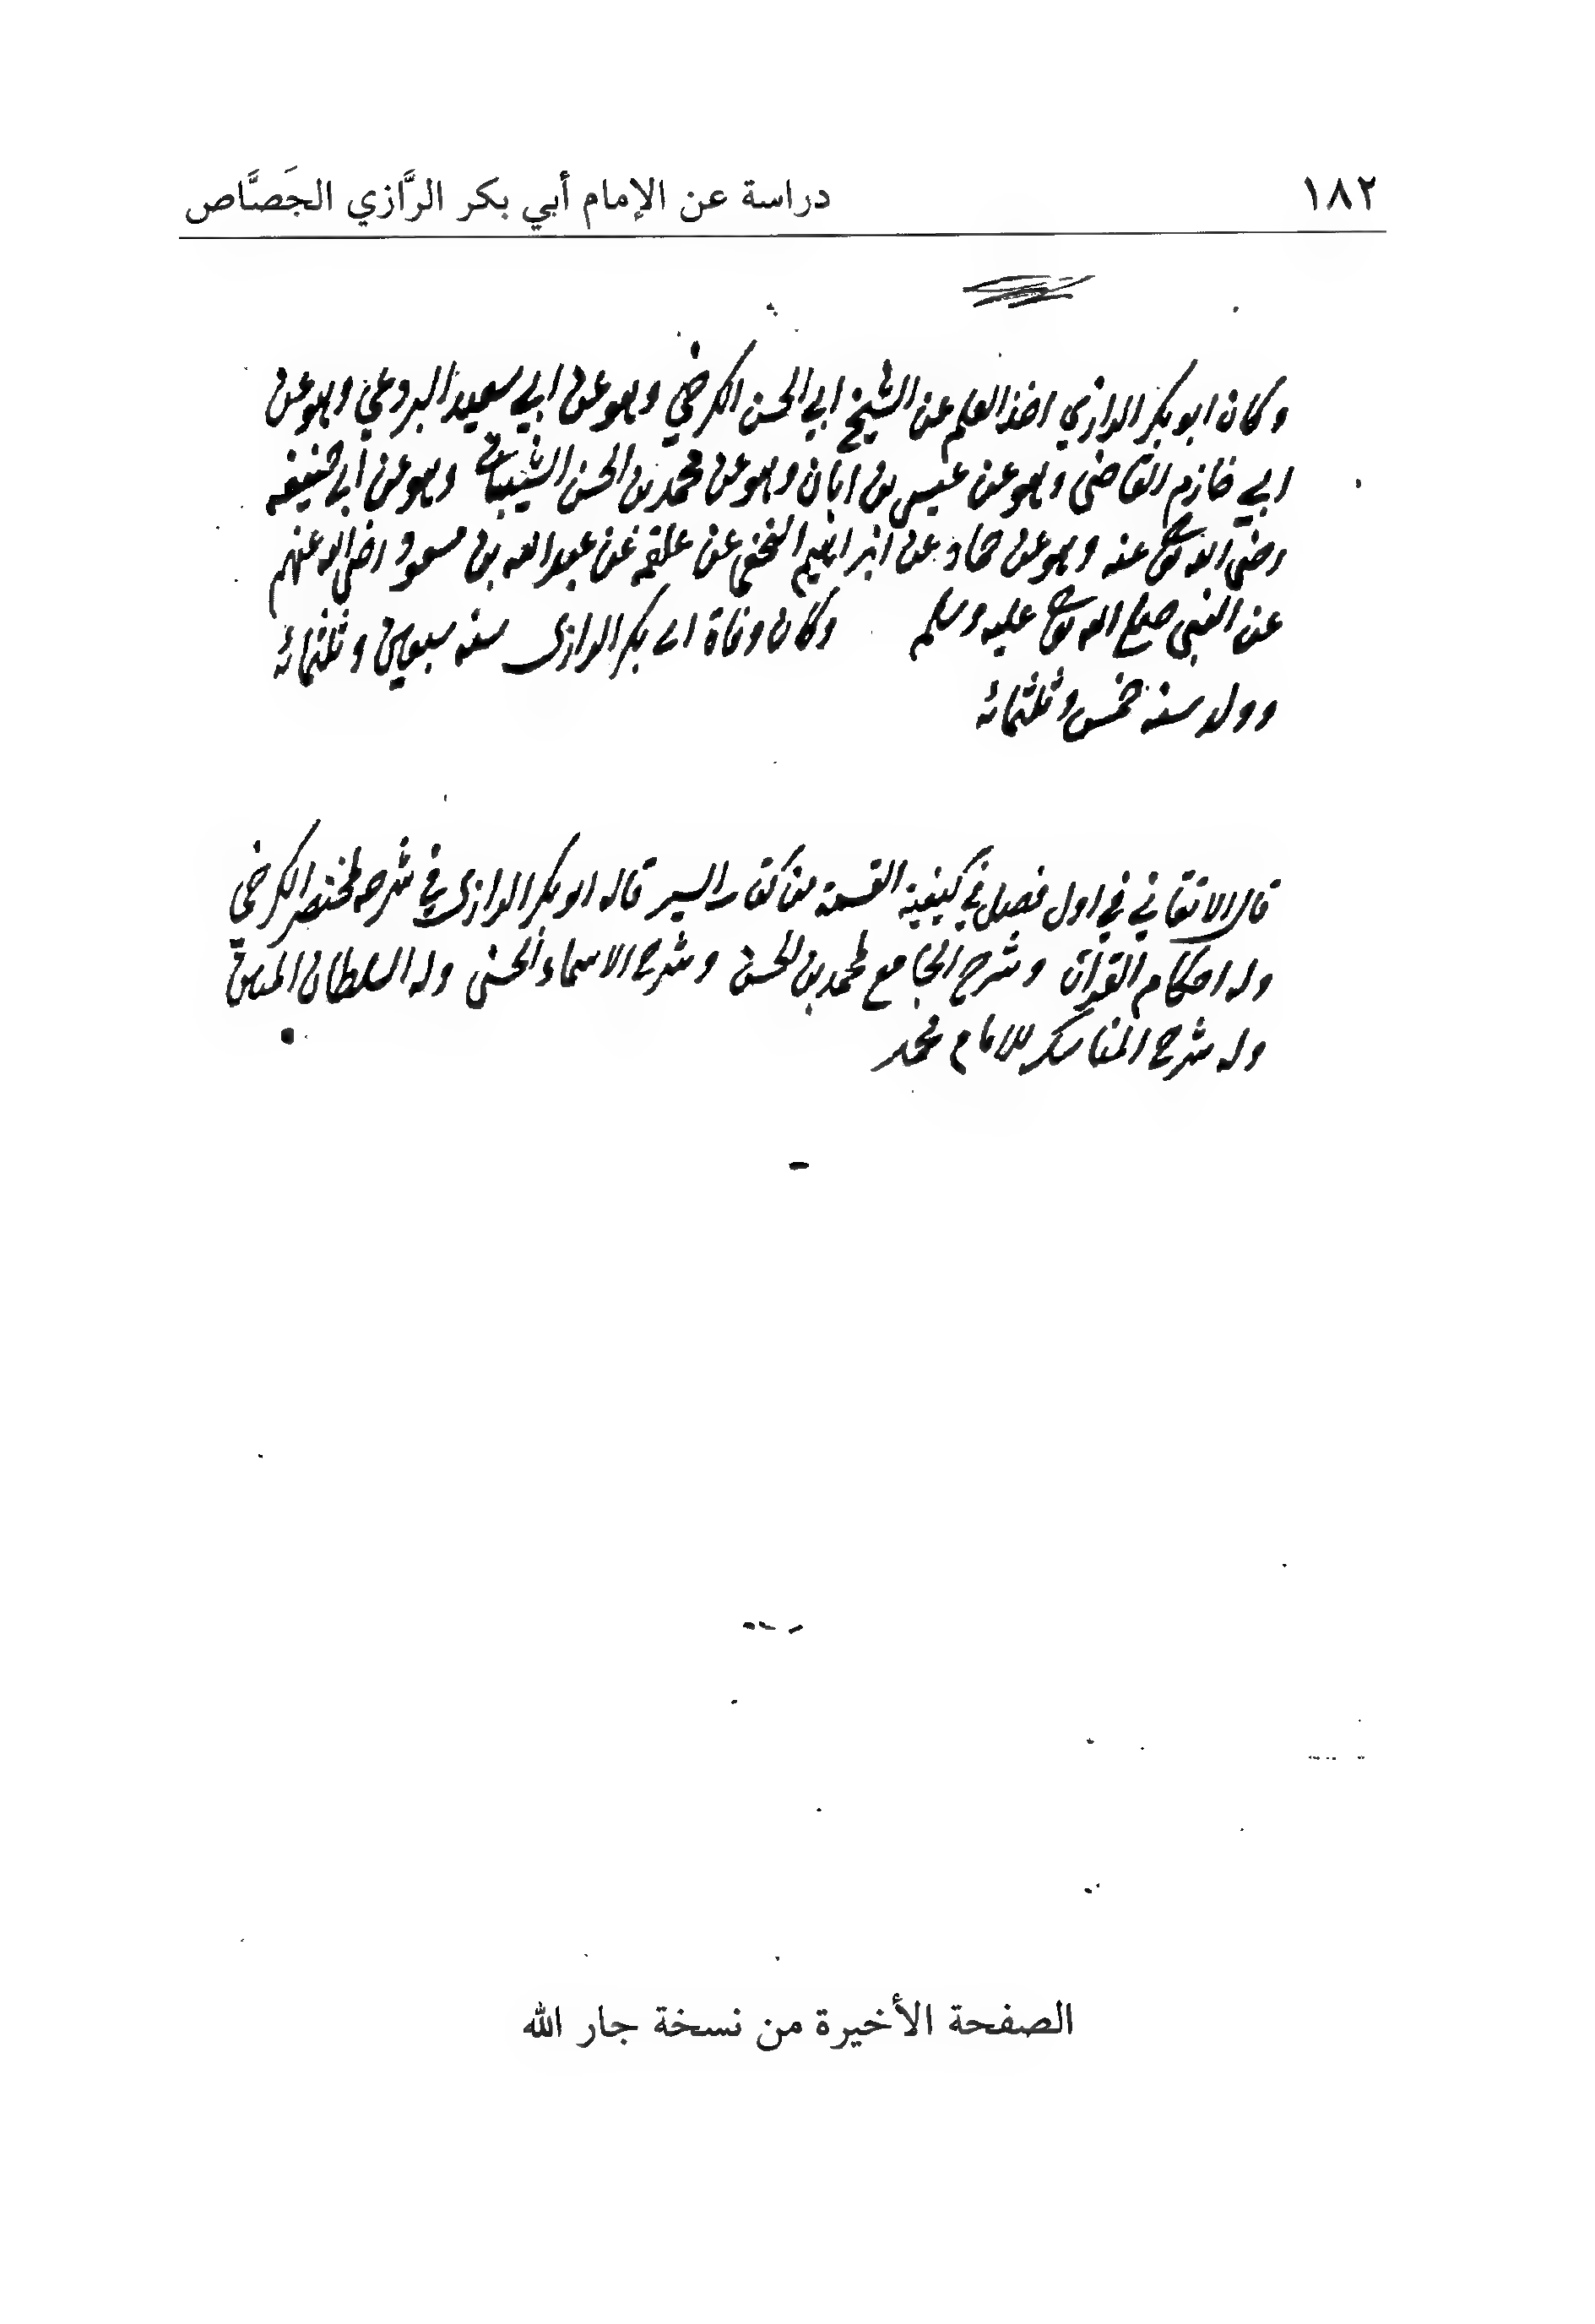 ١٨٢
دراسة عن الإمام أبي بكر الرَّازي الجَصَّاص
وكان ابو بكر الرازي اخذ العلم عن الشيخ ابي الحسن الكرخي وهو عن ابي سعيد البردعي وهو عن
ابي خازم القاضي وهو عن عيسى بن ابان وهو عن محمد بن الحسن الشيباني وهو عن ابي حنيفه
رضي الله عنه وهو عن حماد عن ابراهيم النخعي عن علقمه عن عبد الله بن مسعود رضي الله عنهم
عن النبي صلى الله عليه وسلم وكان وفاة ابي بكر الرازي سنه سبعين وثلثمائه
وولد سنه خمس وثلثمائه
قال الاتقاني في اول فصل في كيفية القسمة من كتاب السير قاله ابو بكر الرازي في شرحه لمختصر الكرخي
وله احكام القرآن وشرح الجامع لمحمد بن الحسن وشرح الاسماء الحسنى وله السلطان
وله شرح المناسك للامام محمد
الصفحة الأخيرة من نسخة جار الله